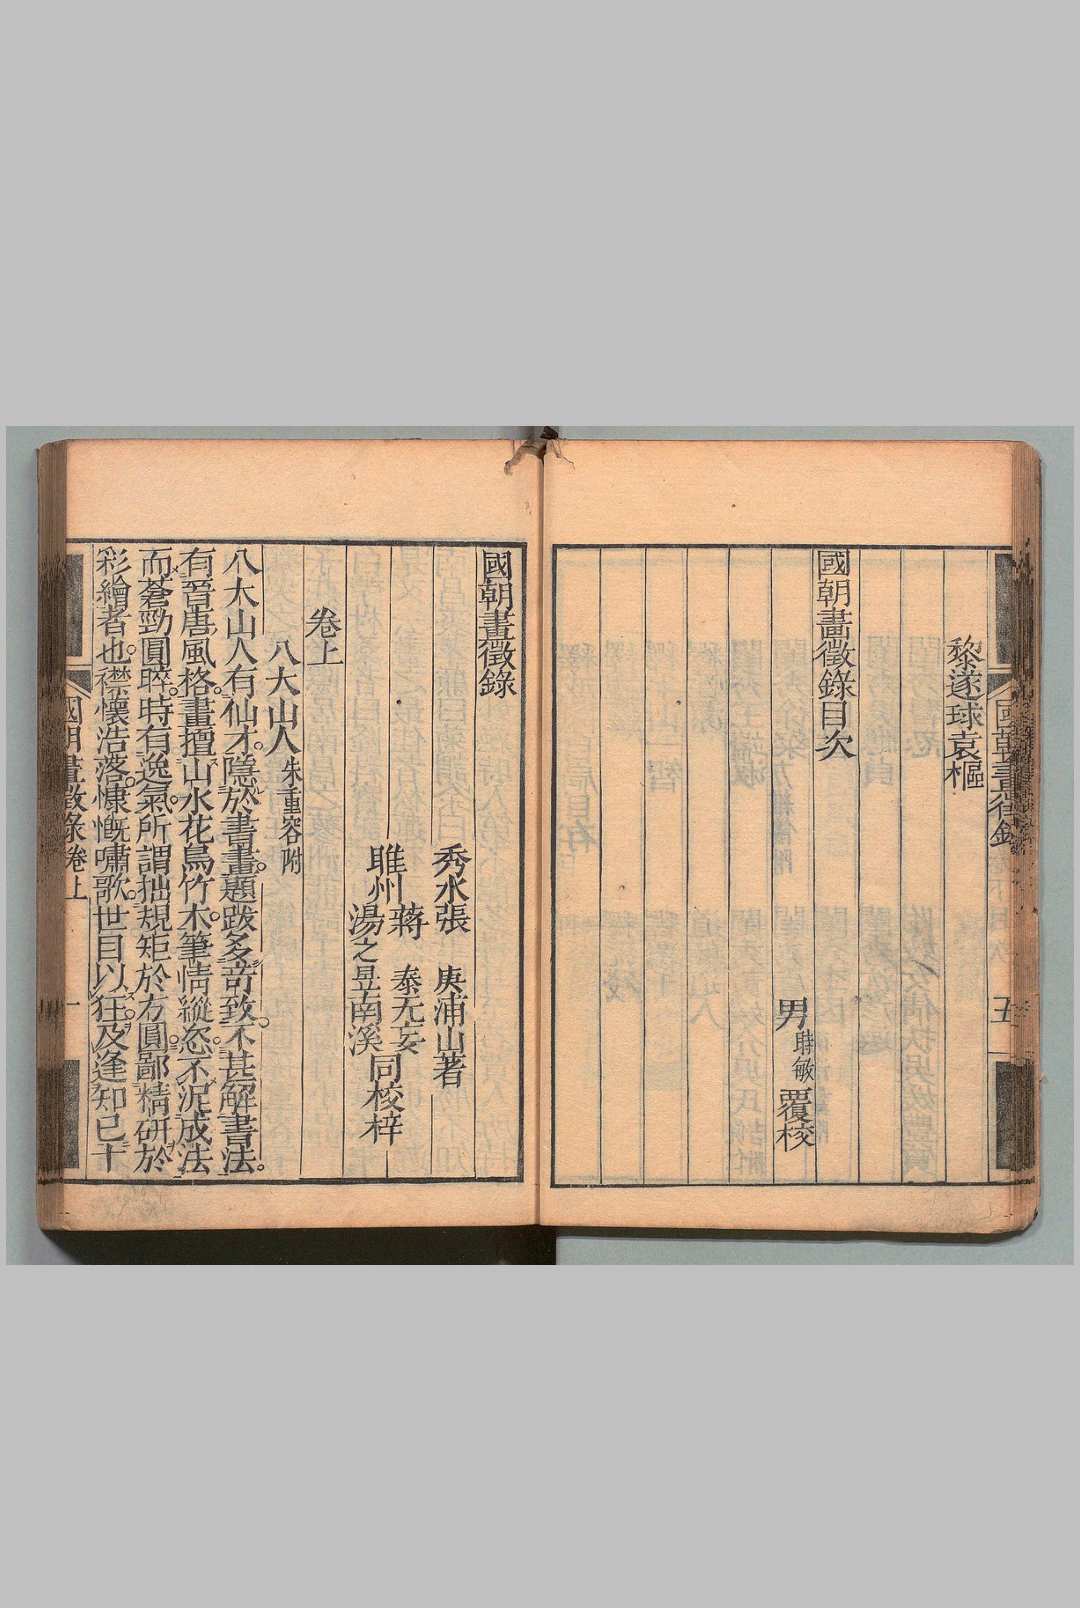 黎遂球袁樞
國朝畫徵錄目次
男 時敏 覆校
五
國朝畫徵錄
秀水張 庚浦山著
睢州 蔣 泰无妄
湯之昱南溪 同校梓
卷上
八大山人 朱重容附
八大山人有仙才。隱於書畫。題跋多奇致。不甚解書法。
有晉唐風格。畫擅山水花鳥竹木。筆情縱恣。不泥成法
而蒼勁圓晬。時有逸氣。所謂拙規矩於方圓。鄙精研於
彩繪者也。襟懷浩落。慷慨嘯歌。世目以狂。及逢知已十
國朝畫徵錄卷上 一